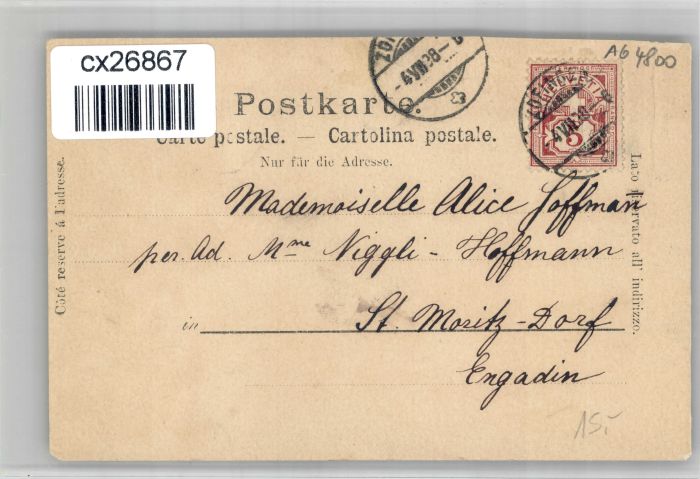 cx26867
AG 4800
- 4 VII 98 -
Postkarte.
Carte postale. — Cartolina postale.
Nur für die Adresse.
Côté reservé à l'adresse.
Lato riservato all' indirizzo.
HELVETIA
5
Mademoiselle Alice Hoffman
per. Ad. Mme Niggli - Hoffmann
in St. Moritz-Dorf
Engadin
15.-